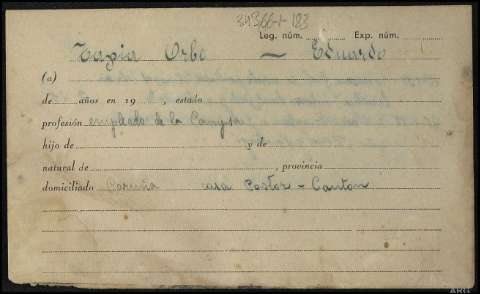 39366-1-183
Leg. núm. Exp. núm.
Tapia Orbe — Eduardo
(a)
de años en 19 , estado
profesión empleado de la Campsa
hijo de y de
natural de , provincia
domiciliado Coruña casa Pastor - Canton